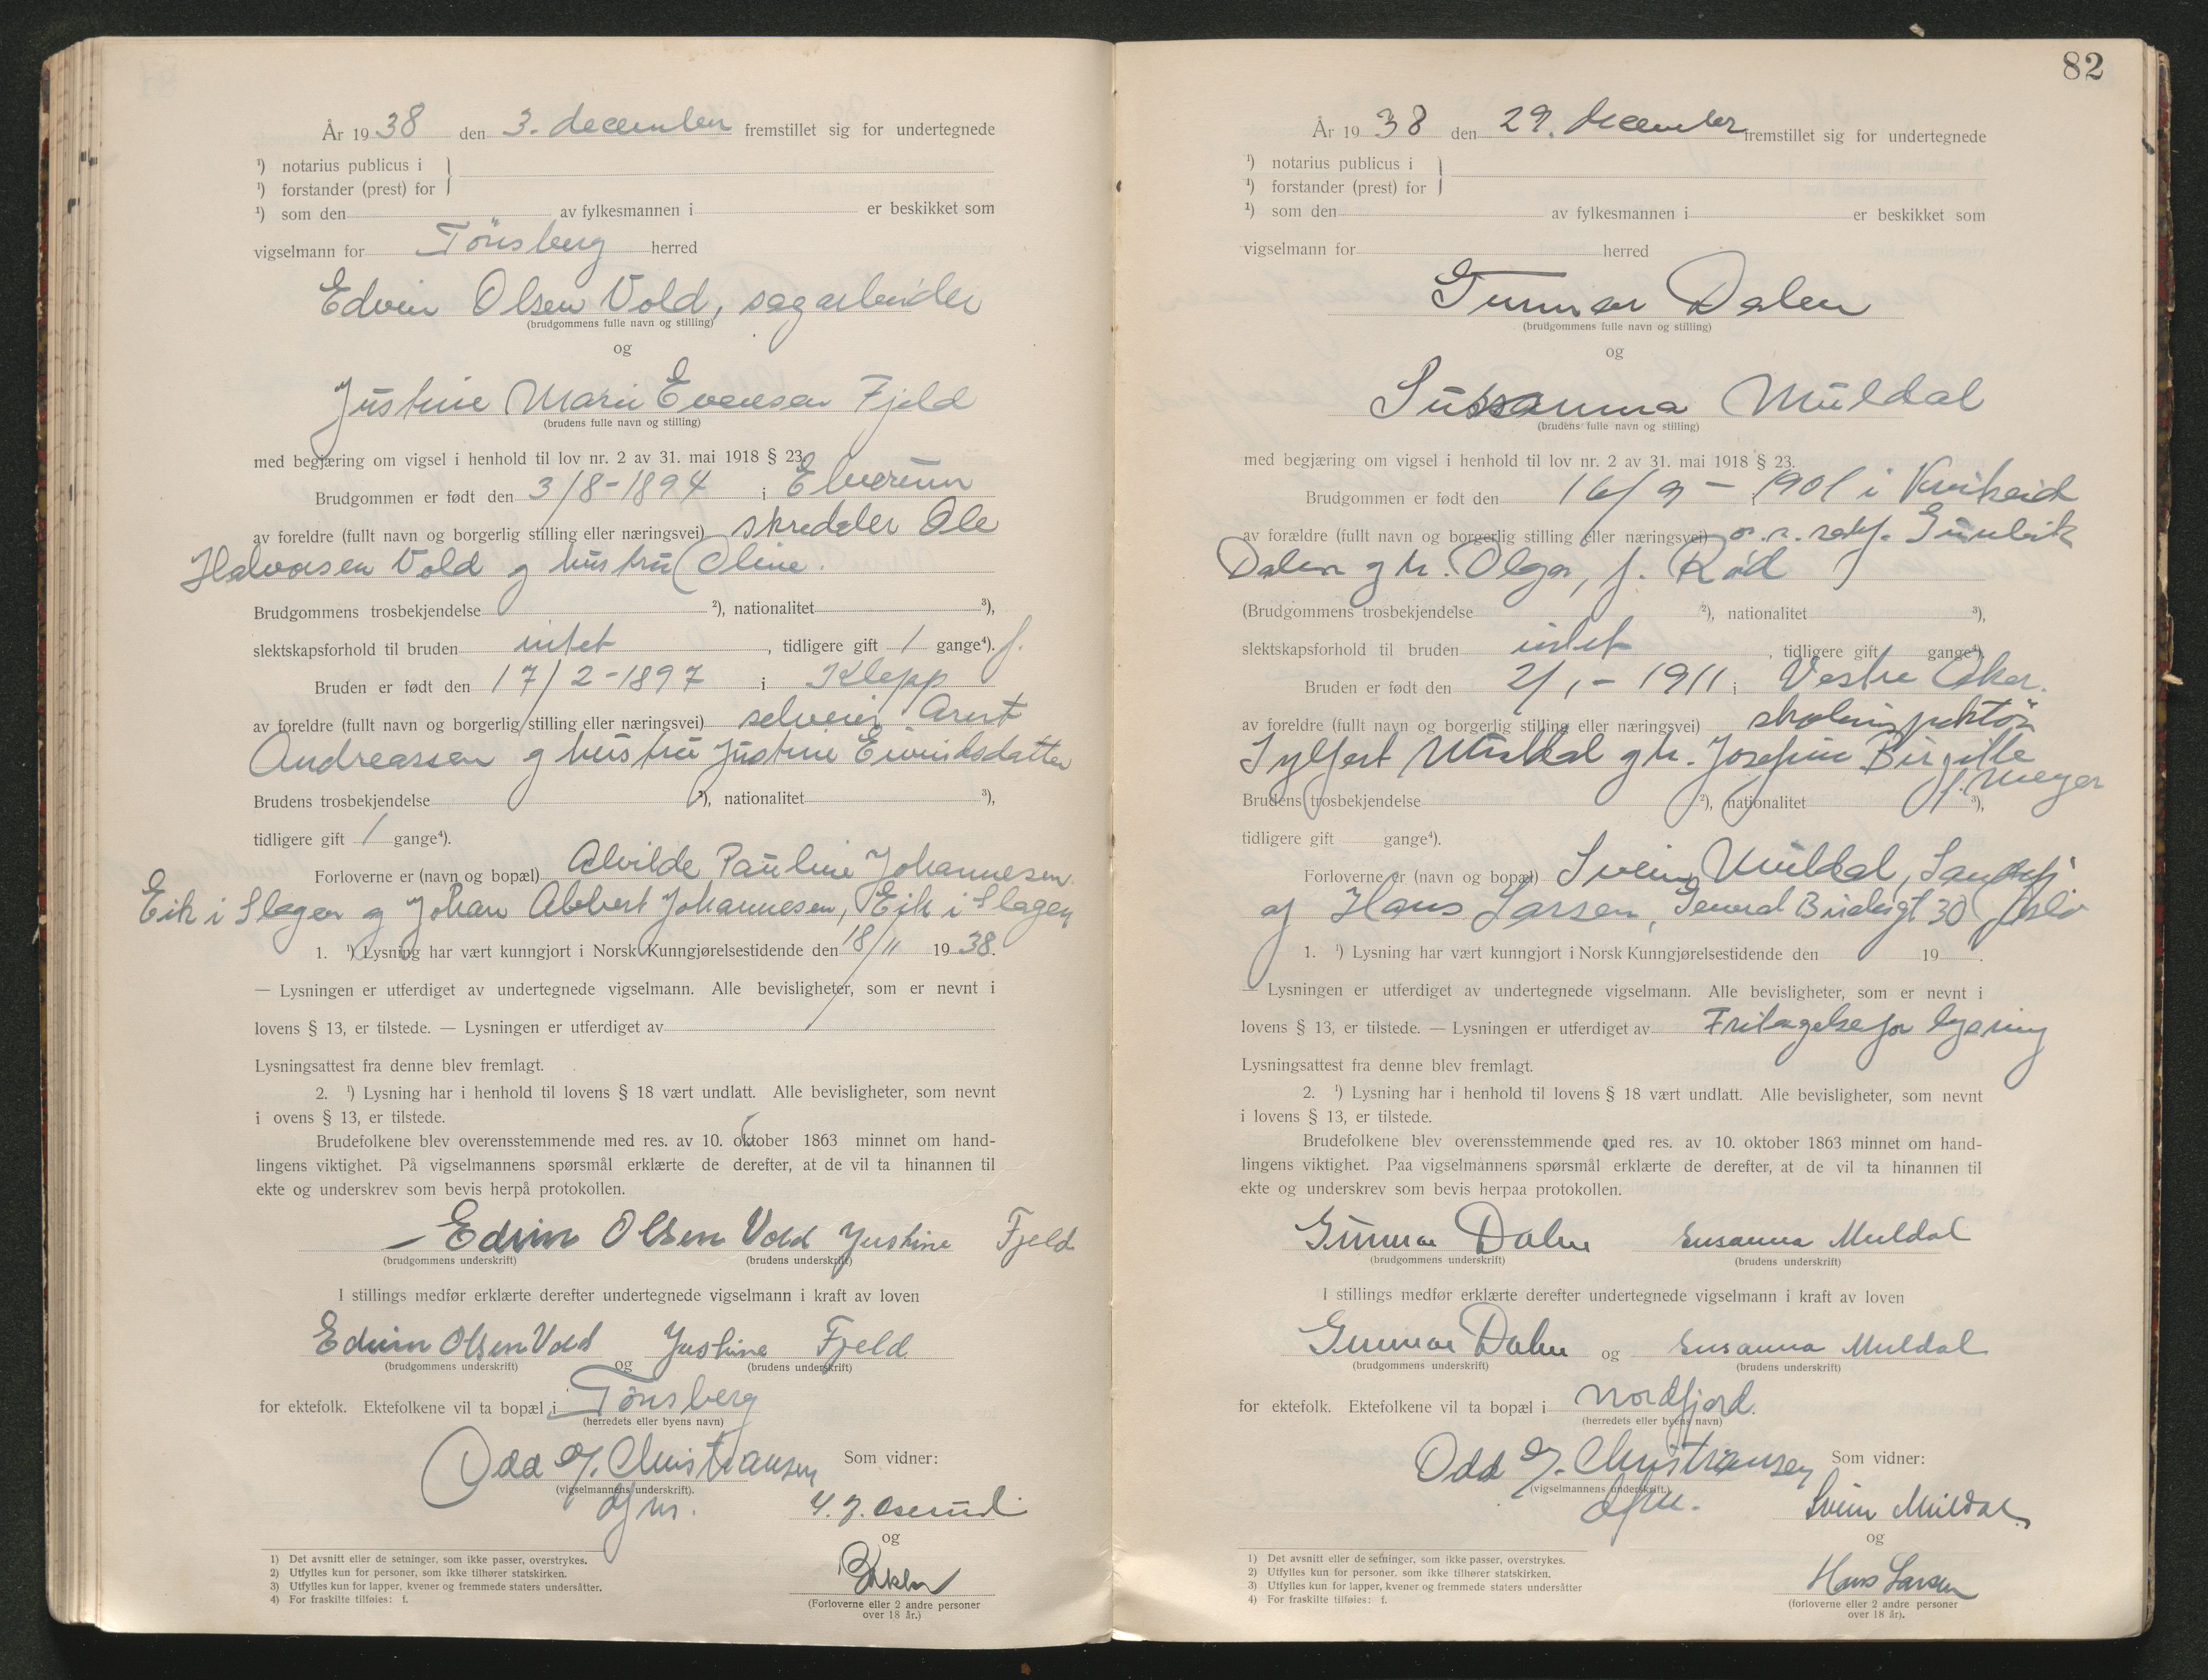 År 1938 den 3. december fremstillet sig for undertegnede
¹) notarius publicus i
¹) forstander (prest) for
¹) som den av fylkesmannen i er beskikket som
vigselmann for Tönsberg herred
Edvin Olsen Vold, sagarbeider
(brudgommens fulle navn og stilling)
og
Justine Marie Evensen Fjeld
(brudens fulle navn og stilling)
med begjæring om vigsel i henhold til lov nr. 2 av 31. mai 1918 § 23.
Brudgommen er født den 3/8-1894 i Elverum
av foreldre (fullt navn og borgerlig stilling eller næringsvei) skredder Ole
Halvorsen Vold og hustru Oline.
Brudgommens trosbekjendelse ²), nationalitet ³),
slektskapsforhold til bruden intet, tidligere gift 1 gange⁴). f.
Bruden er født den 17/2-1897 i Klepp
av foreldre (fullt navn og borgerlig stilling eller næringsvei) selveier Arnt
Andreassen og hustru Justine Eivindsdatter
Brudens trosbekjendelse ²), nationalitet ³),
tidligere gift 1 gange⁴).
Forloverne er (navn og bopæl) Alvilde Pauline Johannesen
Eik i Slagen og Johan Albert Johannesen, Eik i Slagen
1. ¹) Lysning har vært kunngjort i Norsk Kunngjørelsestidende den 18/11 1938.
— Lysningen er utferdiget av undertegnede vigselmann. Alle bevisligheter, som er nevnt i
lovens § 13, er tilstede. — Lysningen er utferdiget av
Lysningsattest fra denne blev fremlagt.
2. ¹) Lysning har i henhold til lovens § 18 vært undlatt. Alle bevisligheter, som nevnt
i ovens § 13, er tilstede.
Brudefolkene blev overensstemmende med res. av 10. oktober 1863 minnet om hand-
lingens viktighet. På vigselmannens spørsmål erklærte de derefter, at de vil ta hinannen til
ekte og underskrev som bevis herpå protokollen.
Edvin Olsen Vold Justine Fjeld
(brudgommens underskrift) (brudens underskrift)
I stillings medfør erklærte derefter undertegnede vigselmann i kraft av loven
Edvin Olsen Vold og Justine Fjeld
(brudgommens underskrift) (brudens underskrift)
for ektefolk. Ektefolkene vil ta bopæl i Tönsberg
(herredets eller byens navn)
Odd J. Christiansen Som vidner:
(vigselmannens underskrift).
dfm.
og
(Forloverne eller 2 andre personer
over 18 år.)
1) Det avsnitt eller de setninger, som ikke passer, overstrykes.
2) Utfylles kun for personer, som ikke tilhører statskirken.
3) Utfylles kun for lapper, kvener og fremmede staters undersåtter.
4) For fraskilte tilføies: f.
82
År 1938 den 29. december fremstillet sig for undertegnede
¹) notarius publicus i
¹) forstander (prest) for
¹) som den av fylkesmannen i er beskikket som
vigselmann for herred
Gunnar Dalen
(brudgommens fulle navn og stilling)
og
Sussanna Muldal
(brudens fulle navn og stilling)
med begjæring om vigsel i henhold til lov nr. 2 av 31. mai 1918 § 23.
Brudgommen er født den 16/9-1901 i Kviteid
av forældre (fullt navn og borgerlig stilling eller næringsvei) o.r.sakf. Gunleik
Dalen og h. Olga, f. Rød
(Brudgommens trosbekjendelse ²), nationalitet ³),
slektskapsforhold til bruden intet, tidligere gift gange⁴).
Bruden er født den 2/1-1911 i Vestre Aker.
av foreldre (fullt navn og borgerlig stilling eller næringsvei) skoleinspektör
Sylfest Muldal og h. Josefine Birgitte
f. Meyer
Brudens trosbekjendelse ²), nationalitet ³),
tidligere gift gange⁴).
Forloverne er (navn og bopæl) Svein Muldal, Sandefj
og Hans Larsen, General Birchsgt 30 Oslo
1. ¹) Lysning har vært kunngjort i Norsk Kunngjørelsestidende den 19 .
— Lysningen er utferdiget av undertegnede vigselmann. Alle bevisligheter, som er nevnt i
lovens § 13, er tilstede. — Lysningen er utferdiget av Fritagelse for lysning
Lysningsattest fra denne blev fremlagt.
2. ¹) Lysning har i henhold til lovens § 18 vært undlatt. Alle bevisligheter, som nevnt
i lovens § 13, er tilstede.
Brudefolkene blev overensstemmende med res. av 10. oktober 1863 minnet om hand-
lingens viktighet. Paa vigselmannens spørsmål erklærte de derefter, at de vil ta hinannen til
ekte og underskrev som bevis herpaa protokollen.
Gunnar Dalen Susanna Muldal
(brudgommens underskrift) (brudens underskrift)
I stillings medfør erklærte derefter undertegnede vigselmann i kraft av loven
Gunnar Dalen og Susanna Muldal
(brudgommens underskrift) (brudens underskrift)
for ektefolk. Ektefolkene vil ta bopæl i Nordfjord.
(herredets eller byens navn)
Odd J. Christiansen Som vidner:
(vigselmannens underskrift.)
dfm.
Svein Muldal
og
Hans Larsen
(forloverne eller 2 andre personer
over 18 år).
1) Det avsnitt eller de setninger, som ikke passer, overstrykes.
2) Utfylles kun for personer, som ikke tilhører statskirken.
3) Utfylles kun for lapper, kvener og fremmede staters undersåtter
4) For fraskilte tilføies: f.